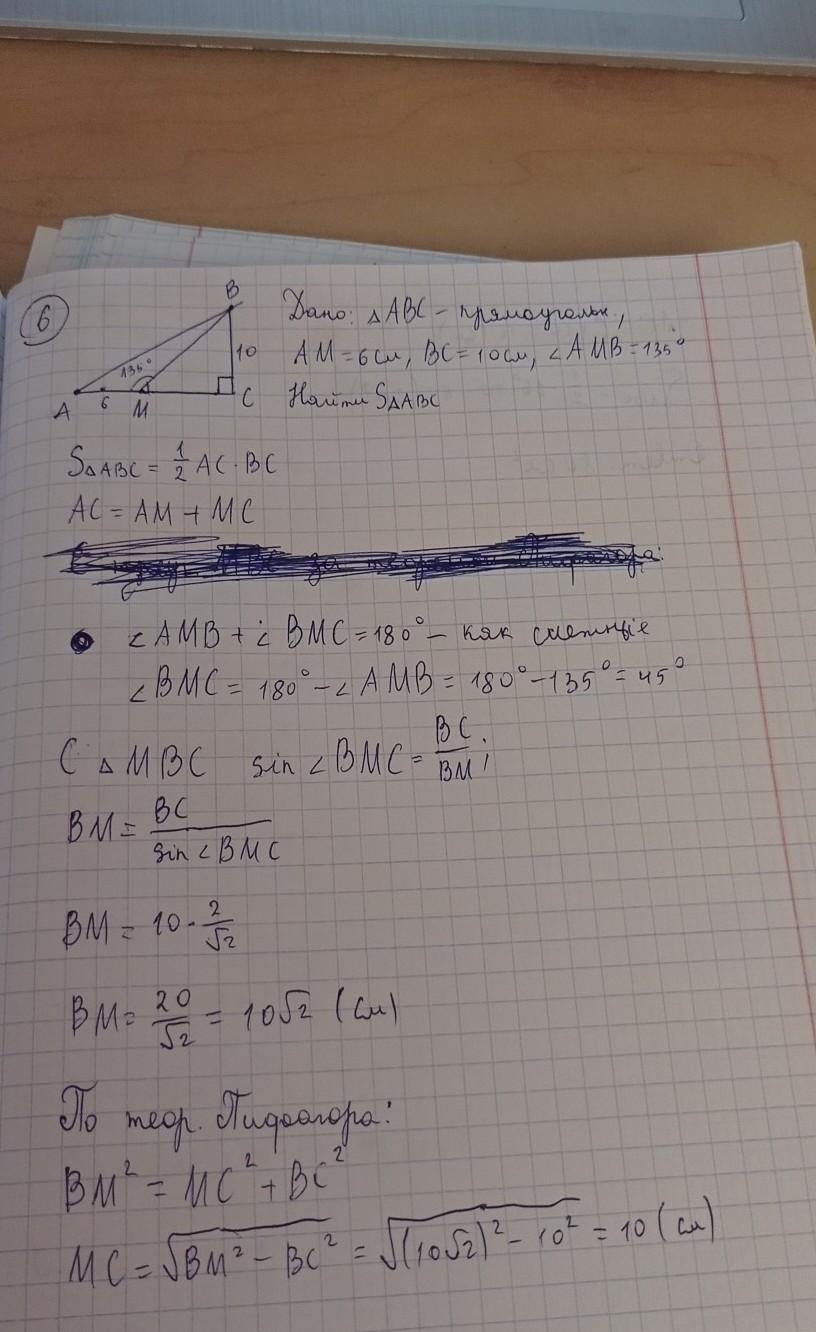 6
B
135°
10
A 6 M C
Дано: △ABC - прямоугольн.,
AM = 6 см, BC = 10 см, ∠AMB = 135°
Найти S△ABC
S△ABC = 1/2 AC · BC
AC = AM + MC
∠AMB + ∠BMC = 180° - как смежные
∠BMC = 180° - ∠AMB = 180° - 135° = 45°
С △MBC sin∠BMC = BC/BM;
BM = BC/sin∠BMC
BM = 10 · 2/√2
BM = 20/√2 = 10√2 (см)
По теор. Пифагора:
BM² = MC² + BC²
MC = √BM² - BC² = √(10√2)² - 10² = 10 (см)